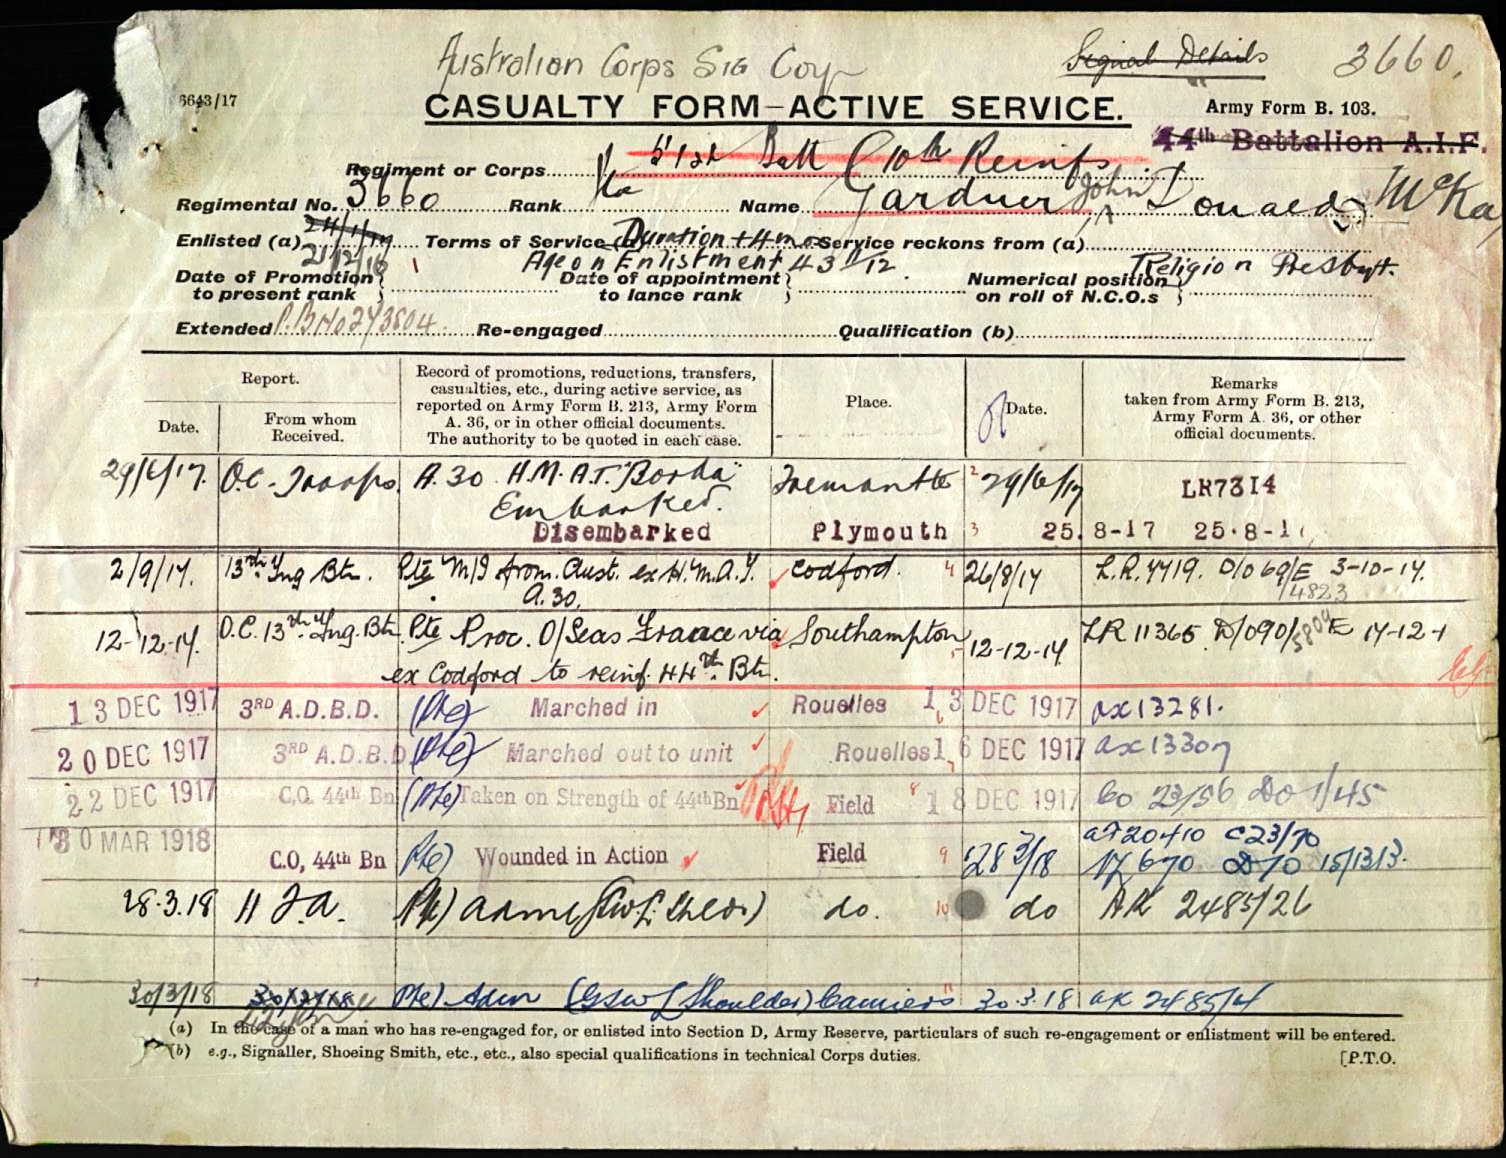 Australian Corps Sig Coy
Signal Details 3660.
6643/17
CASUALTY FORM—ACTIVE SERVICE.
Army Form B. 103.
44th Battalion A.I.F.
Regiment or Corps 51st Batt (10th Reinfs
Regimental No. 3660 Rank Pte Name Gardner John Donald McKay
Enlisted (a) 24/1/17 Terms of Service (a) Duration + 4 mos Service reckons from (a)
21/12/16 Age on Enlistment 43 11/12. Religion Presbyt.
Date of Promotion to present rank } Date of appointment to lance rank } Numerical position on roll of N.C.O.s }
Extended Re-engaged Qualification (b)
Report.
Date. From whom Received.
Record of promotions, reductions, transfers, casualties, etc., during active service, as reported on Army Form B. 213, Army Form A. 36, or in other official documents. The authority to be quoted in each case.
Place.
Date.
Remarks taken from Army Form B. 213, Army Form A. 36, or other official documents.
29/6/17. O.C. Troops A.30 H.M.A.T. "Borda" Fremantle 2 29/6/17 LR7314
Embarked.
Disembarked Plymouth 3 25.8-17 25.8-1
2/9/17. 13th Tng Btn. Pte M/I from Aust. ex H.M.A.T. Codford. 4 26/8/17 L.R.7719. D/O 69/E 3-10-17.
A.30. 4823
12-12-17. O.C. 13th Tng. Btn. Pte Proc. O/Seas France via Southampton 5 12-12-17 LR 11365 D/O90/5804 E 17-12-1
ex Codford to reinf. 44th Btn.
13 DEC 1917 3RD A.D.B.D. (Pte) Marched in Rouelles 6 13 DEC 1917 ax13281.
20 DEC 1917 3RD A.D.B.D (Pte) Marched out to unit Rouelles 7 16 DEC 1917 ax13307
22 DEC 1917 C.O. 44th Bn (Pte) Taken on Strength of 44th Bn Field 8 18 DEC 1917 Co 23/56 DO 1/45
30 MAR 1918 C.O, 44th Bn Pte) Wounded in Action Field 9 28/3/18 a920410 C23/70
17670 D70 15/1313.
28.3.18 11 F.A. Pte) adm (GSW L. Shldr) do. 10 do AK 2485/26
30/3/18 30/3/18 Pte) Adm (GSW L Shoulder) Camiers 11 30.3.18 AK 2485/4
(a) In the case of a man who has re-engaged for, or enlisted into Section D, Army Reserve, particulars of such re-engagement or enlistment will be entered.
(b) e.g., Signaller, Shoeing Smith, etc., etc., also special qualifications in technical Corps duties.
[P.T.O.